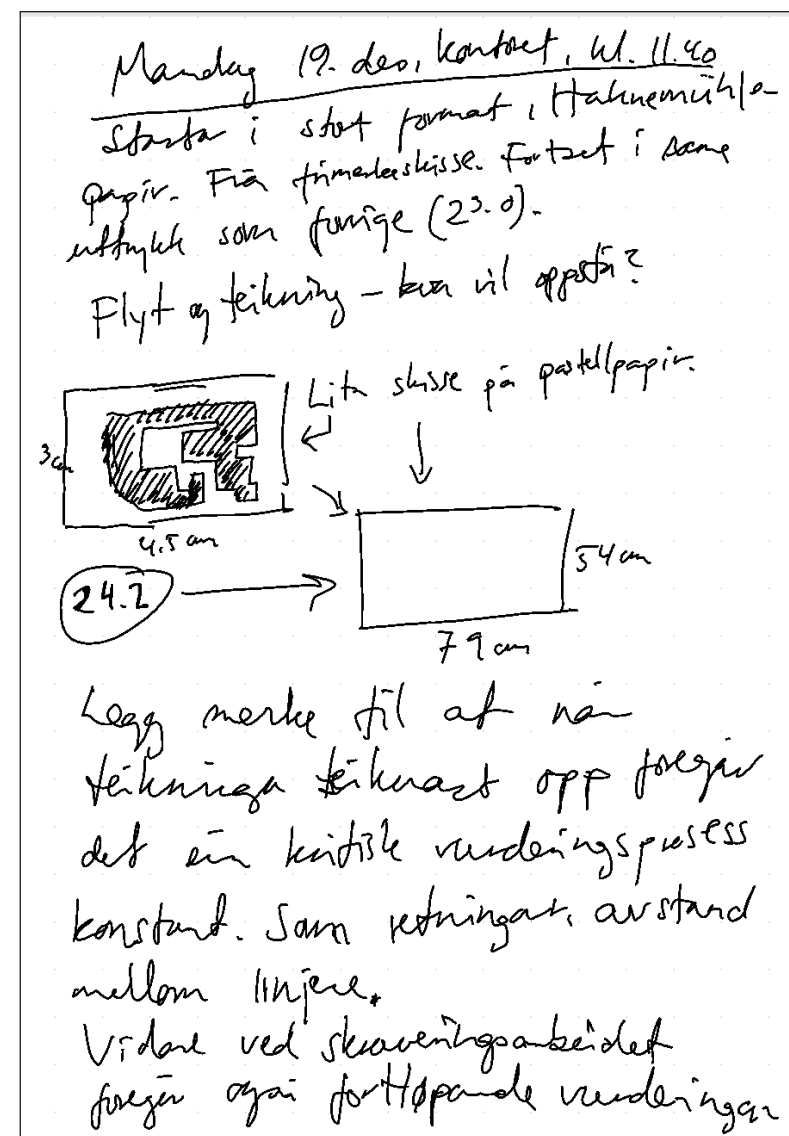 Mandag 19. des, kontoret, kl. 11.40
Starta i stort format, Hahnemühle-
papir. Frå frimerkeskisse. Fortset i same
uttrykk som forrige (23.0).
Flyt og teikning – kva vil oppstå?
Lita skisse på pastellpapir.
3 cm
4.5 cm
54 cm
24.2
79 cm
Legg merke til at når
teikninga teiknast opp foregår
det ein kritisk vurderingsprosess
konstant. Som retningar, avstand
mellom linjene.
Vidare ved skraveringsarbeidet
foregår også fortløpande vurderingar